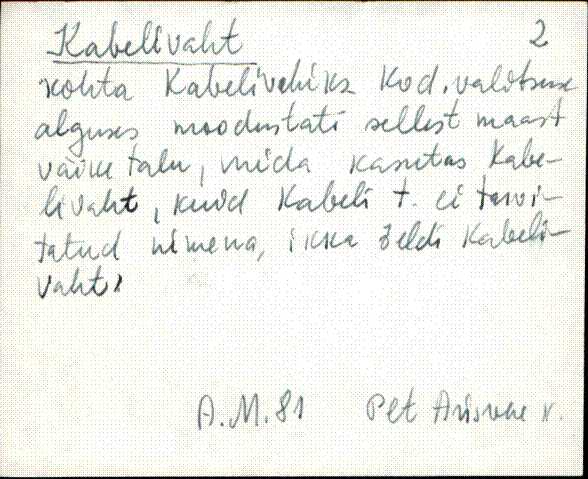 Kabelivaht 2
kohta Kabelivahiks Kod. valitsuse
alguses moodustati sellest maast
väike talu, mida kasutas Kabe-
livaht, kuid Kabeli t. ei tarvi-
tatud nimena, ikka öeldi Kabeli-
vaht.
A.M. 81 Pet